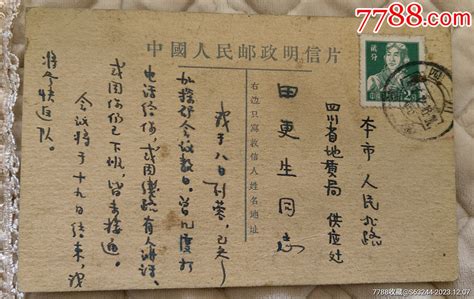 7788.com
中國人民邮政明信片
貳分
四川
本市人民北路
四川省地質局 供應处
田更生同志
右边只寫收信人姓名地址
我于八日到蓉，已参
加探矿会议数日。曾几度打
电话给你，或因线路有人讲话，
或因你们已下班，皆未接通。
会议将于十九日结束，我
将尽快返队。
7788收藏@S63244-2023.12.07